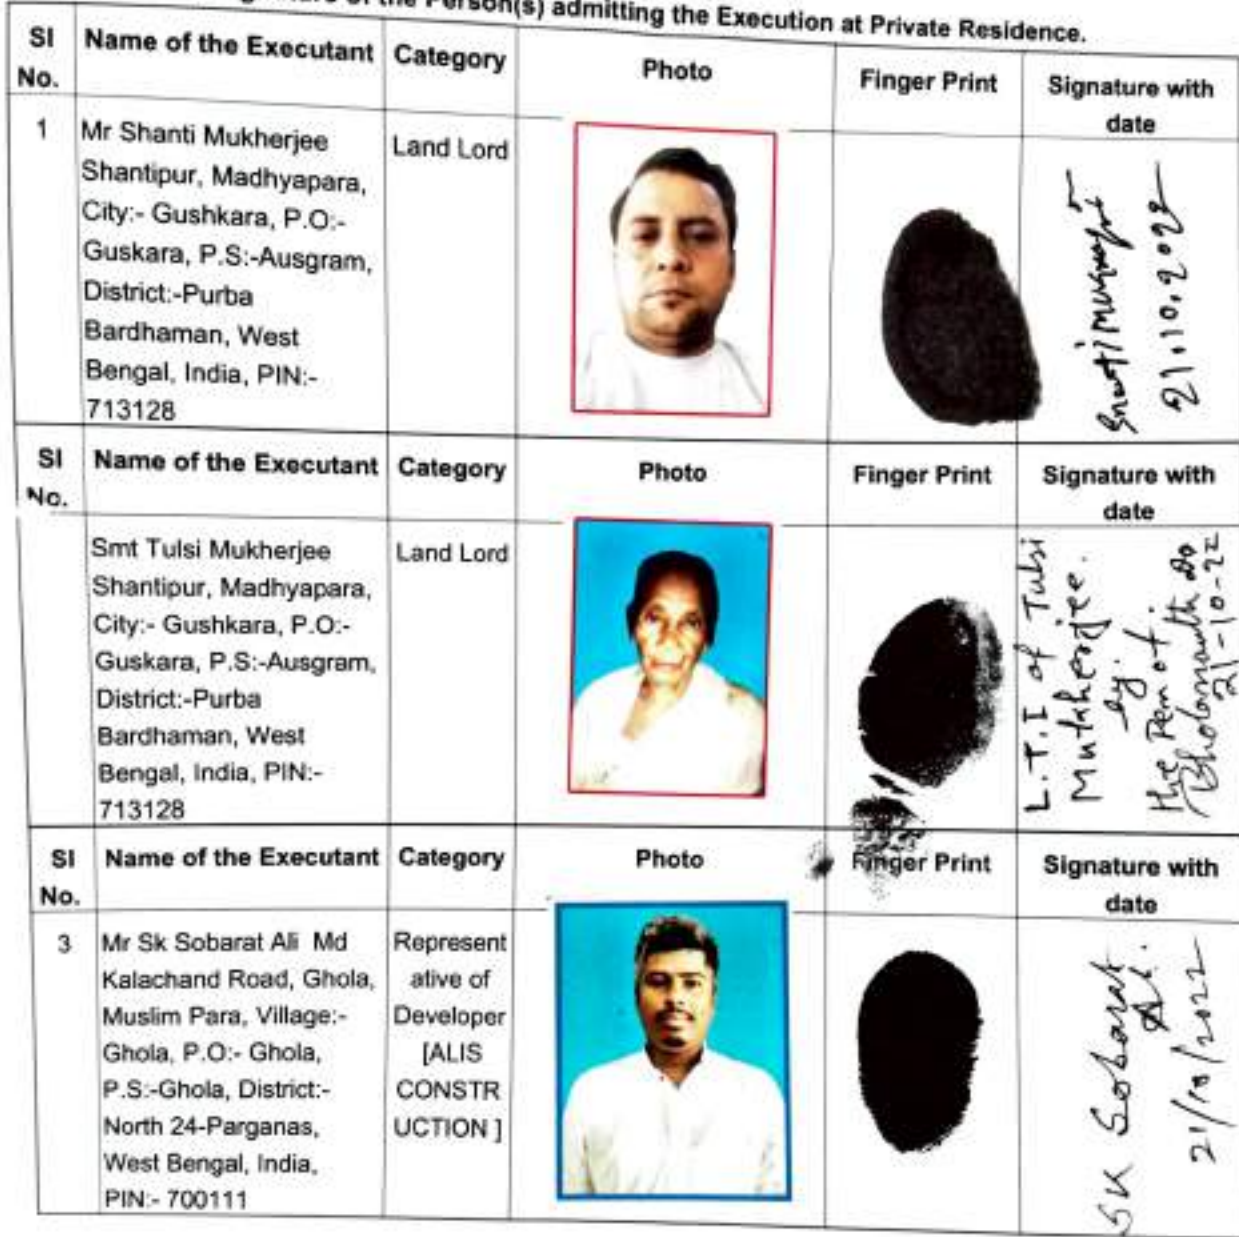 of the Person(s) admitting the Execution at Private Residence.
SI No. Name of the Executant Category Photo Finger Print Signature with date
1 Mr Shanti Mukherjee
Shantipur, Madhyapara,
City:- Gushkara, P.O:-
Guskara, P.S:-Ausgram,
District:-Purba
Bardhaman, West
Bengal, India, PIN:-
713128
Land Lord
21.10.2022
SI No. Name of the Executant Category Photo Finger Print Signature with date
Smt Tulsi Mukherjee
Shantipur, Madhyapara,
City:- Gushkara, P.O:-
Guskara, P.S:-Ausgram,
District:-Purba
Bardhaman, West
Bengal, India, PIN:-
713128
Land Lord
L.T.I of Tulsi
Mukherjee.
by.
the Pen of.
21-10-22
SI No. Name of the Executant Category Photo Finger Print Signature with date
3 Mr Sk Sobarat Ali Md
Kalachand Road, Ghola,
Muslim Para, Village:-
Ghola, P.O:- Ghola,
P.S:-Ghola, District:-
North 24-Parganas,
West Bengal, India,
PIN:- 700111
Represent
ative of
Developer
[ALIS
CONSTR
UCTION ]
SK Sobarat
Ali.
21/10/2022